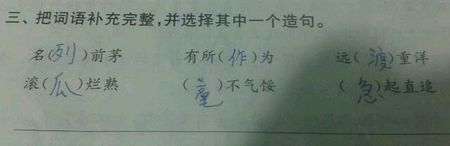 三、把词语补充完整,并选择其中一个造句。
名(列)前茅 有所(作)为 远(渡)重洋
滚(瓜)烂熟 (毫)不气馁 (急)起直追